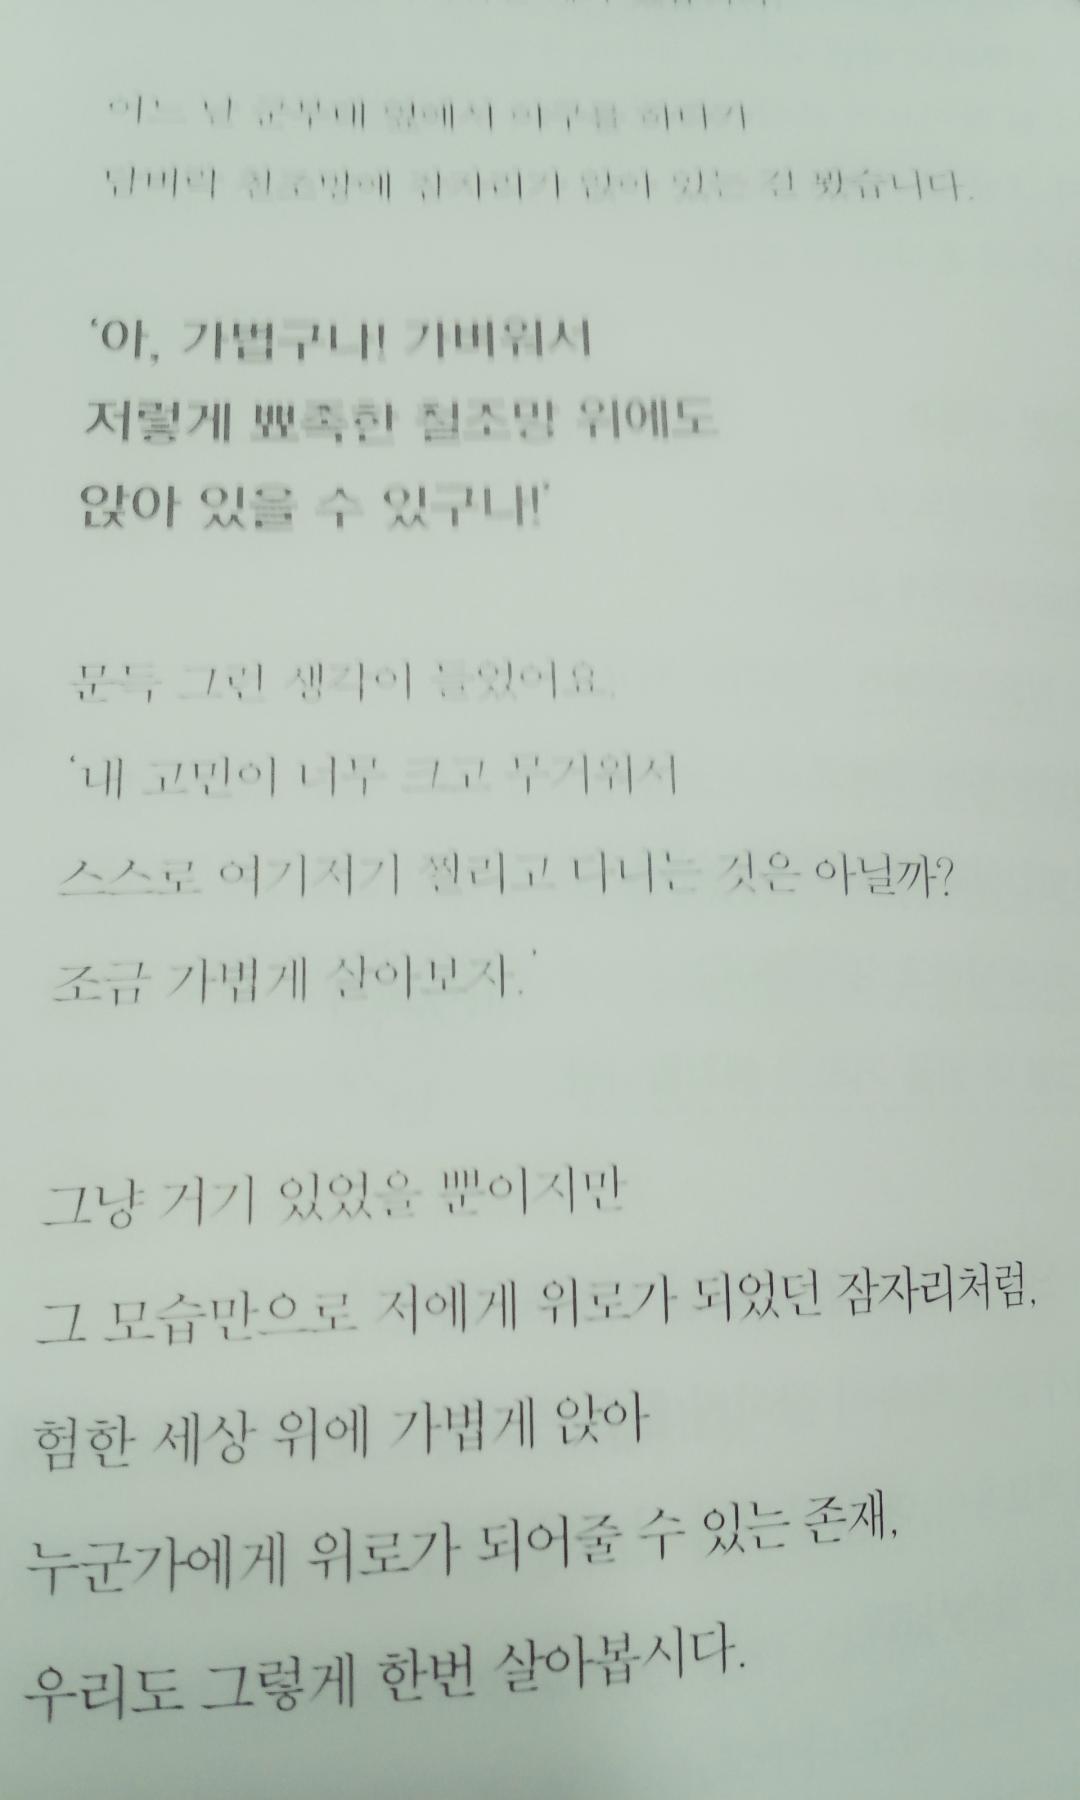 어느 날 군부대 앞에서 야구를 하다가
담벼락 철조망에 잠자리가 앉아 있는 걸 봤습니다.
‘아, 가볍구나! 가벼워서
저렇게 뾰족한 철조망 위에도
앉아 있을 수 있구나!’
문득 그런 생각이 들었어요.
‘내 고민이 너무 크고 무거워서
스스로 여기저기 찔리고 다니는 것은 아닐까?
조금 가볍게 살아보자.’
그냥 거기 있었을 뿐이지만
그 모습만으로 저에게 위로가 되었던 잠자리처럼,
험한 세상 위에 가볍게 앉아
누군가에게 위로가 되어줄 수 있는 존재,
우리도 그렇게 한번 살아봅시다.